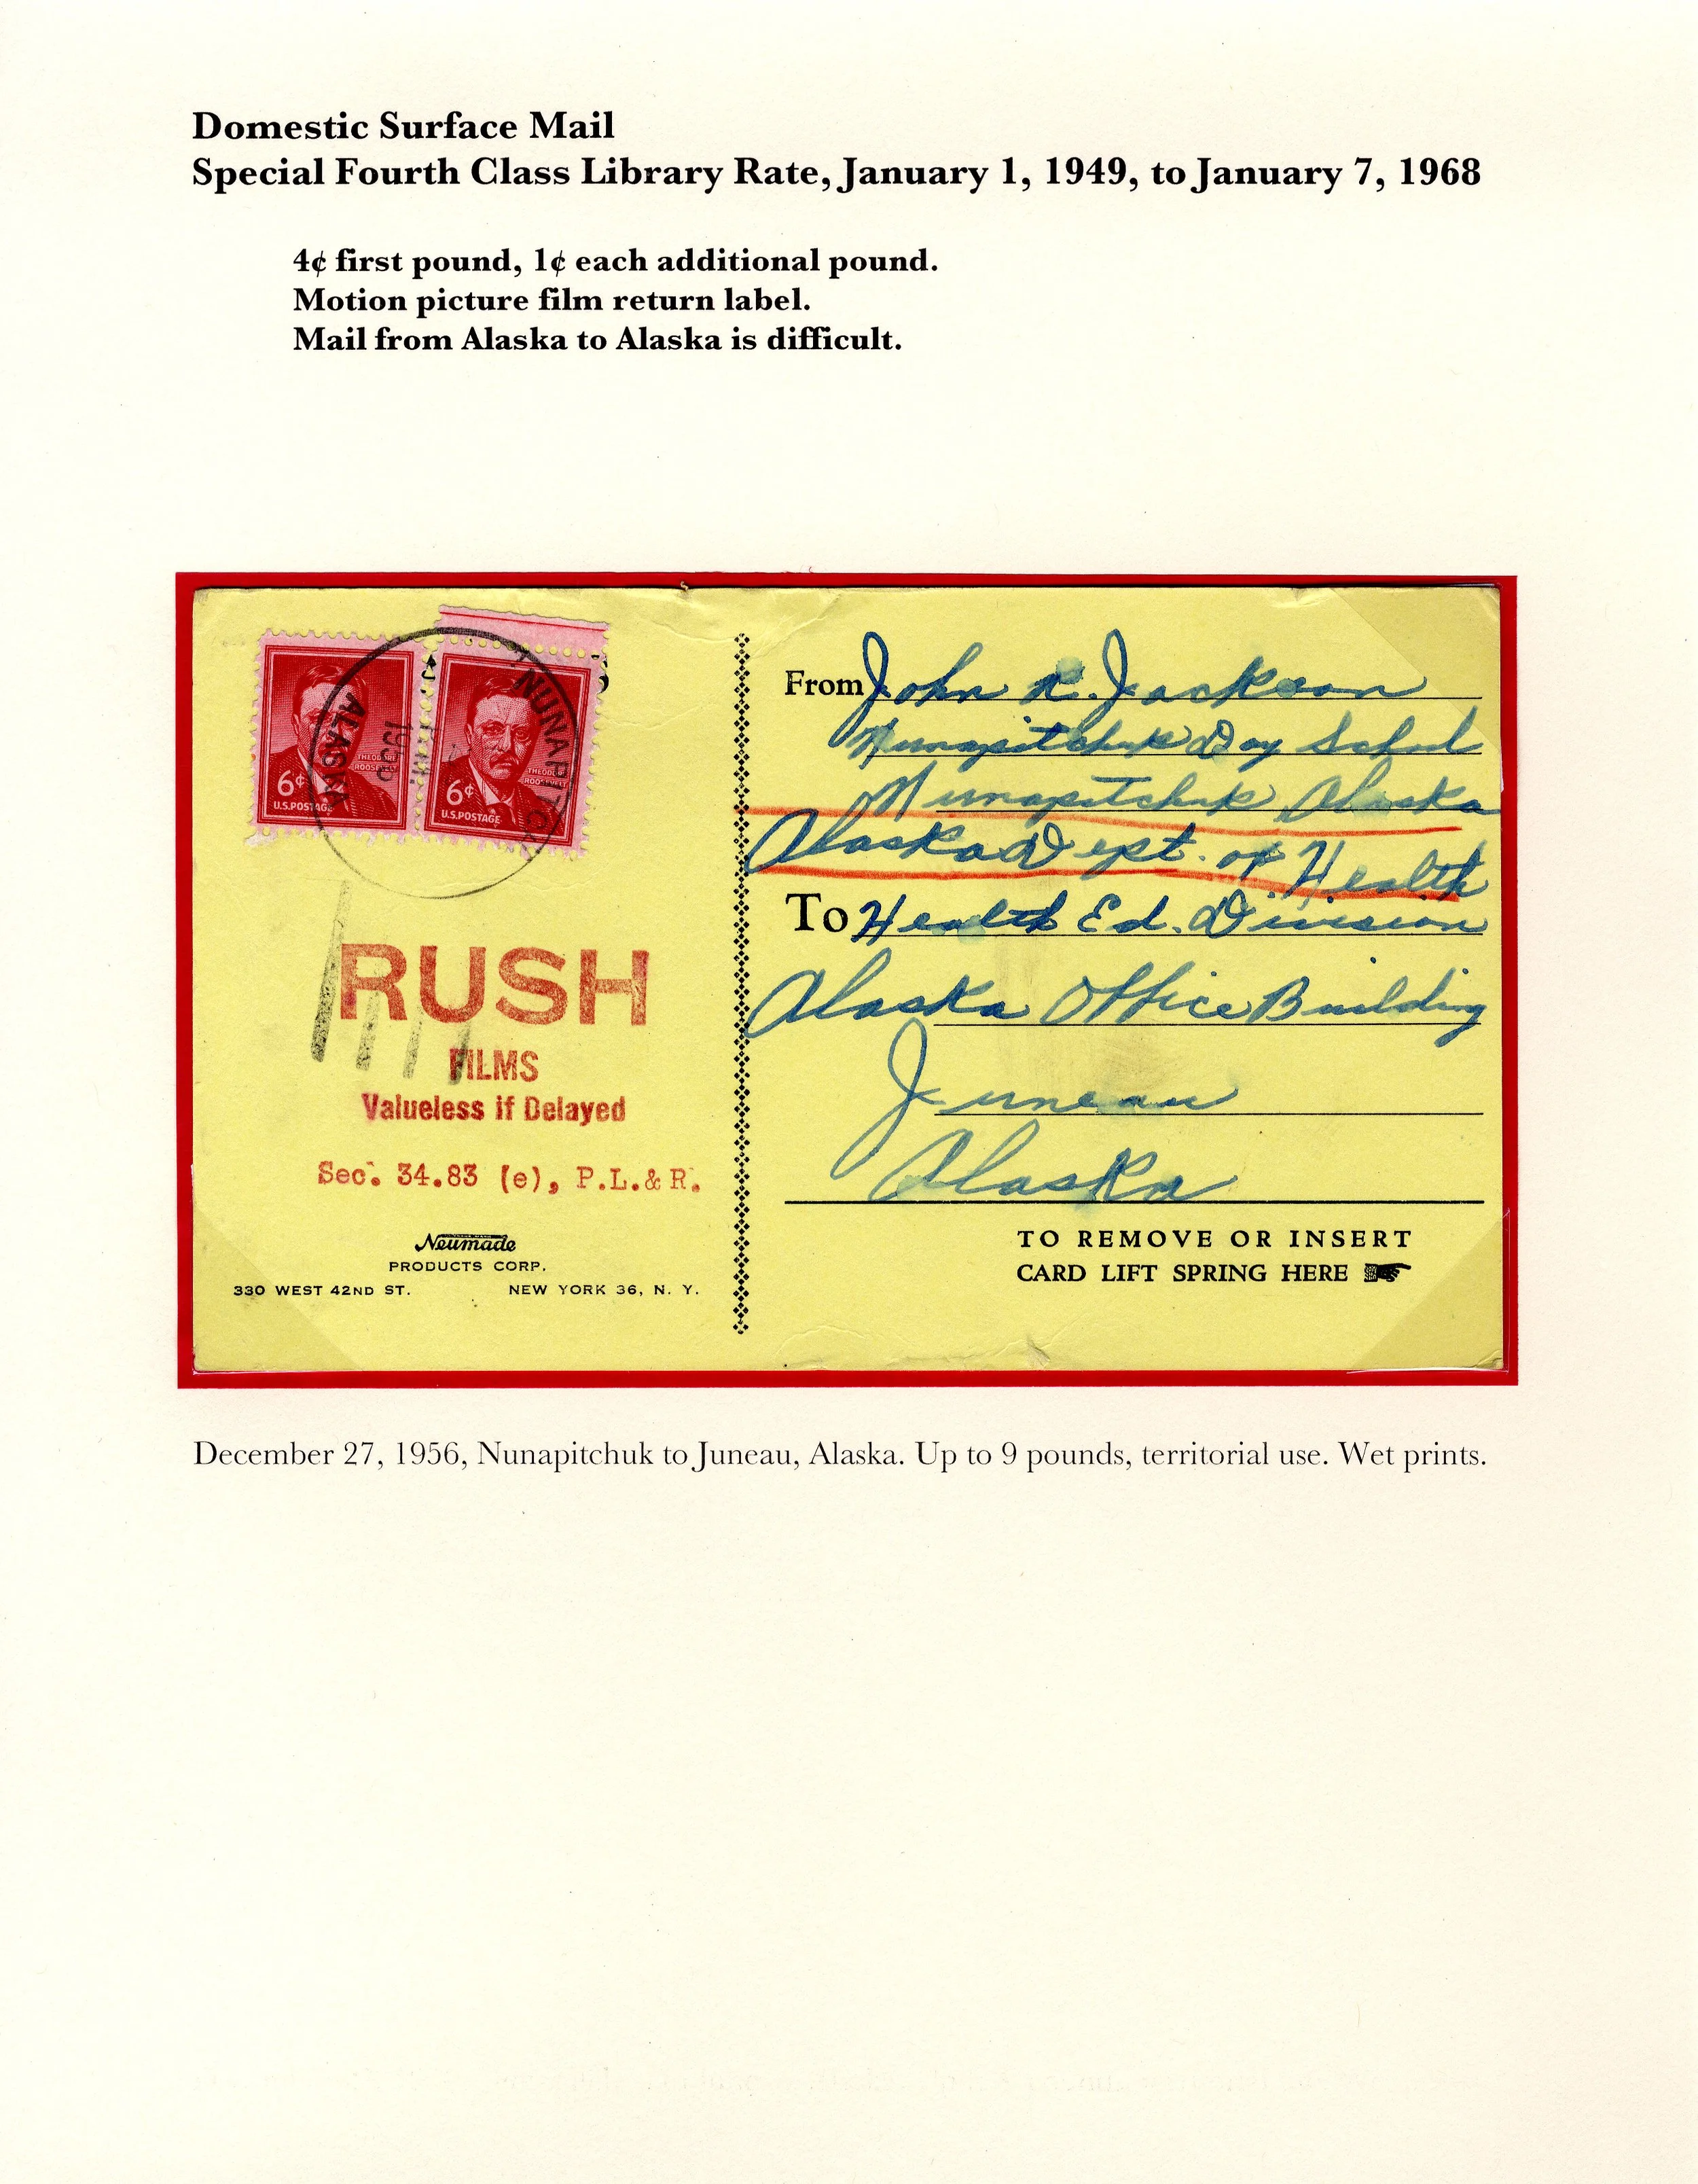 Domestic Surface Mail
Special Fourth Class Library Rate, January 1, 1949, to January 7, 1968
4¢ first pound, 1¢ each additional pound.
Motion picture film return label.
Mail from Alaska to Alaska is difficult.
6¢
THEODORE ROOSEVELT
U.S.POSTAGE
6¢
THEODORE ROOSEVELT
U.S.POSTAGE
ALASKA
RUSH
FILMS
Valueless if Delayed
Sec. 34.83 (e), P.L.& R.
Neumade
PRODUCTS CORP.
330 WEST 42ND ST. NEW YORK 36, N. Y.
From John R. Jackson
Nunapitchuk Day School
Nunapitchuk, Alaska
Alaska Dept. of Health
To Health Ed. Division
Alaska Office Building
Juneau
Alaska
TO REMOVE OR INSERT
CARD LIFT SPRING HERE
December 27, 1956, Nunapitchuk to Juneau, Alaska. Up to 9 pounds, territorial use. Wet prints.